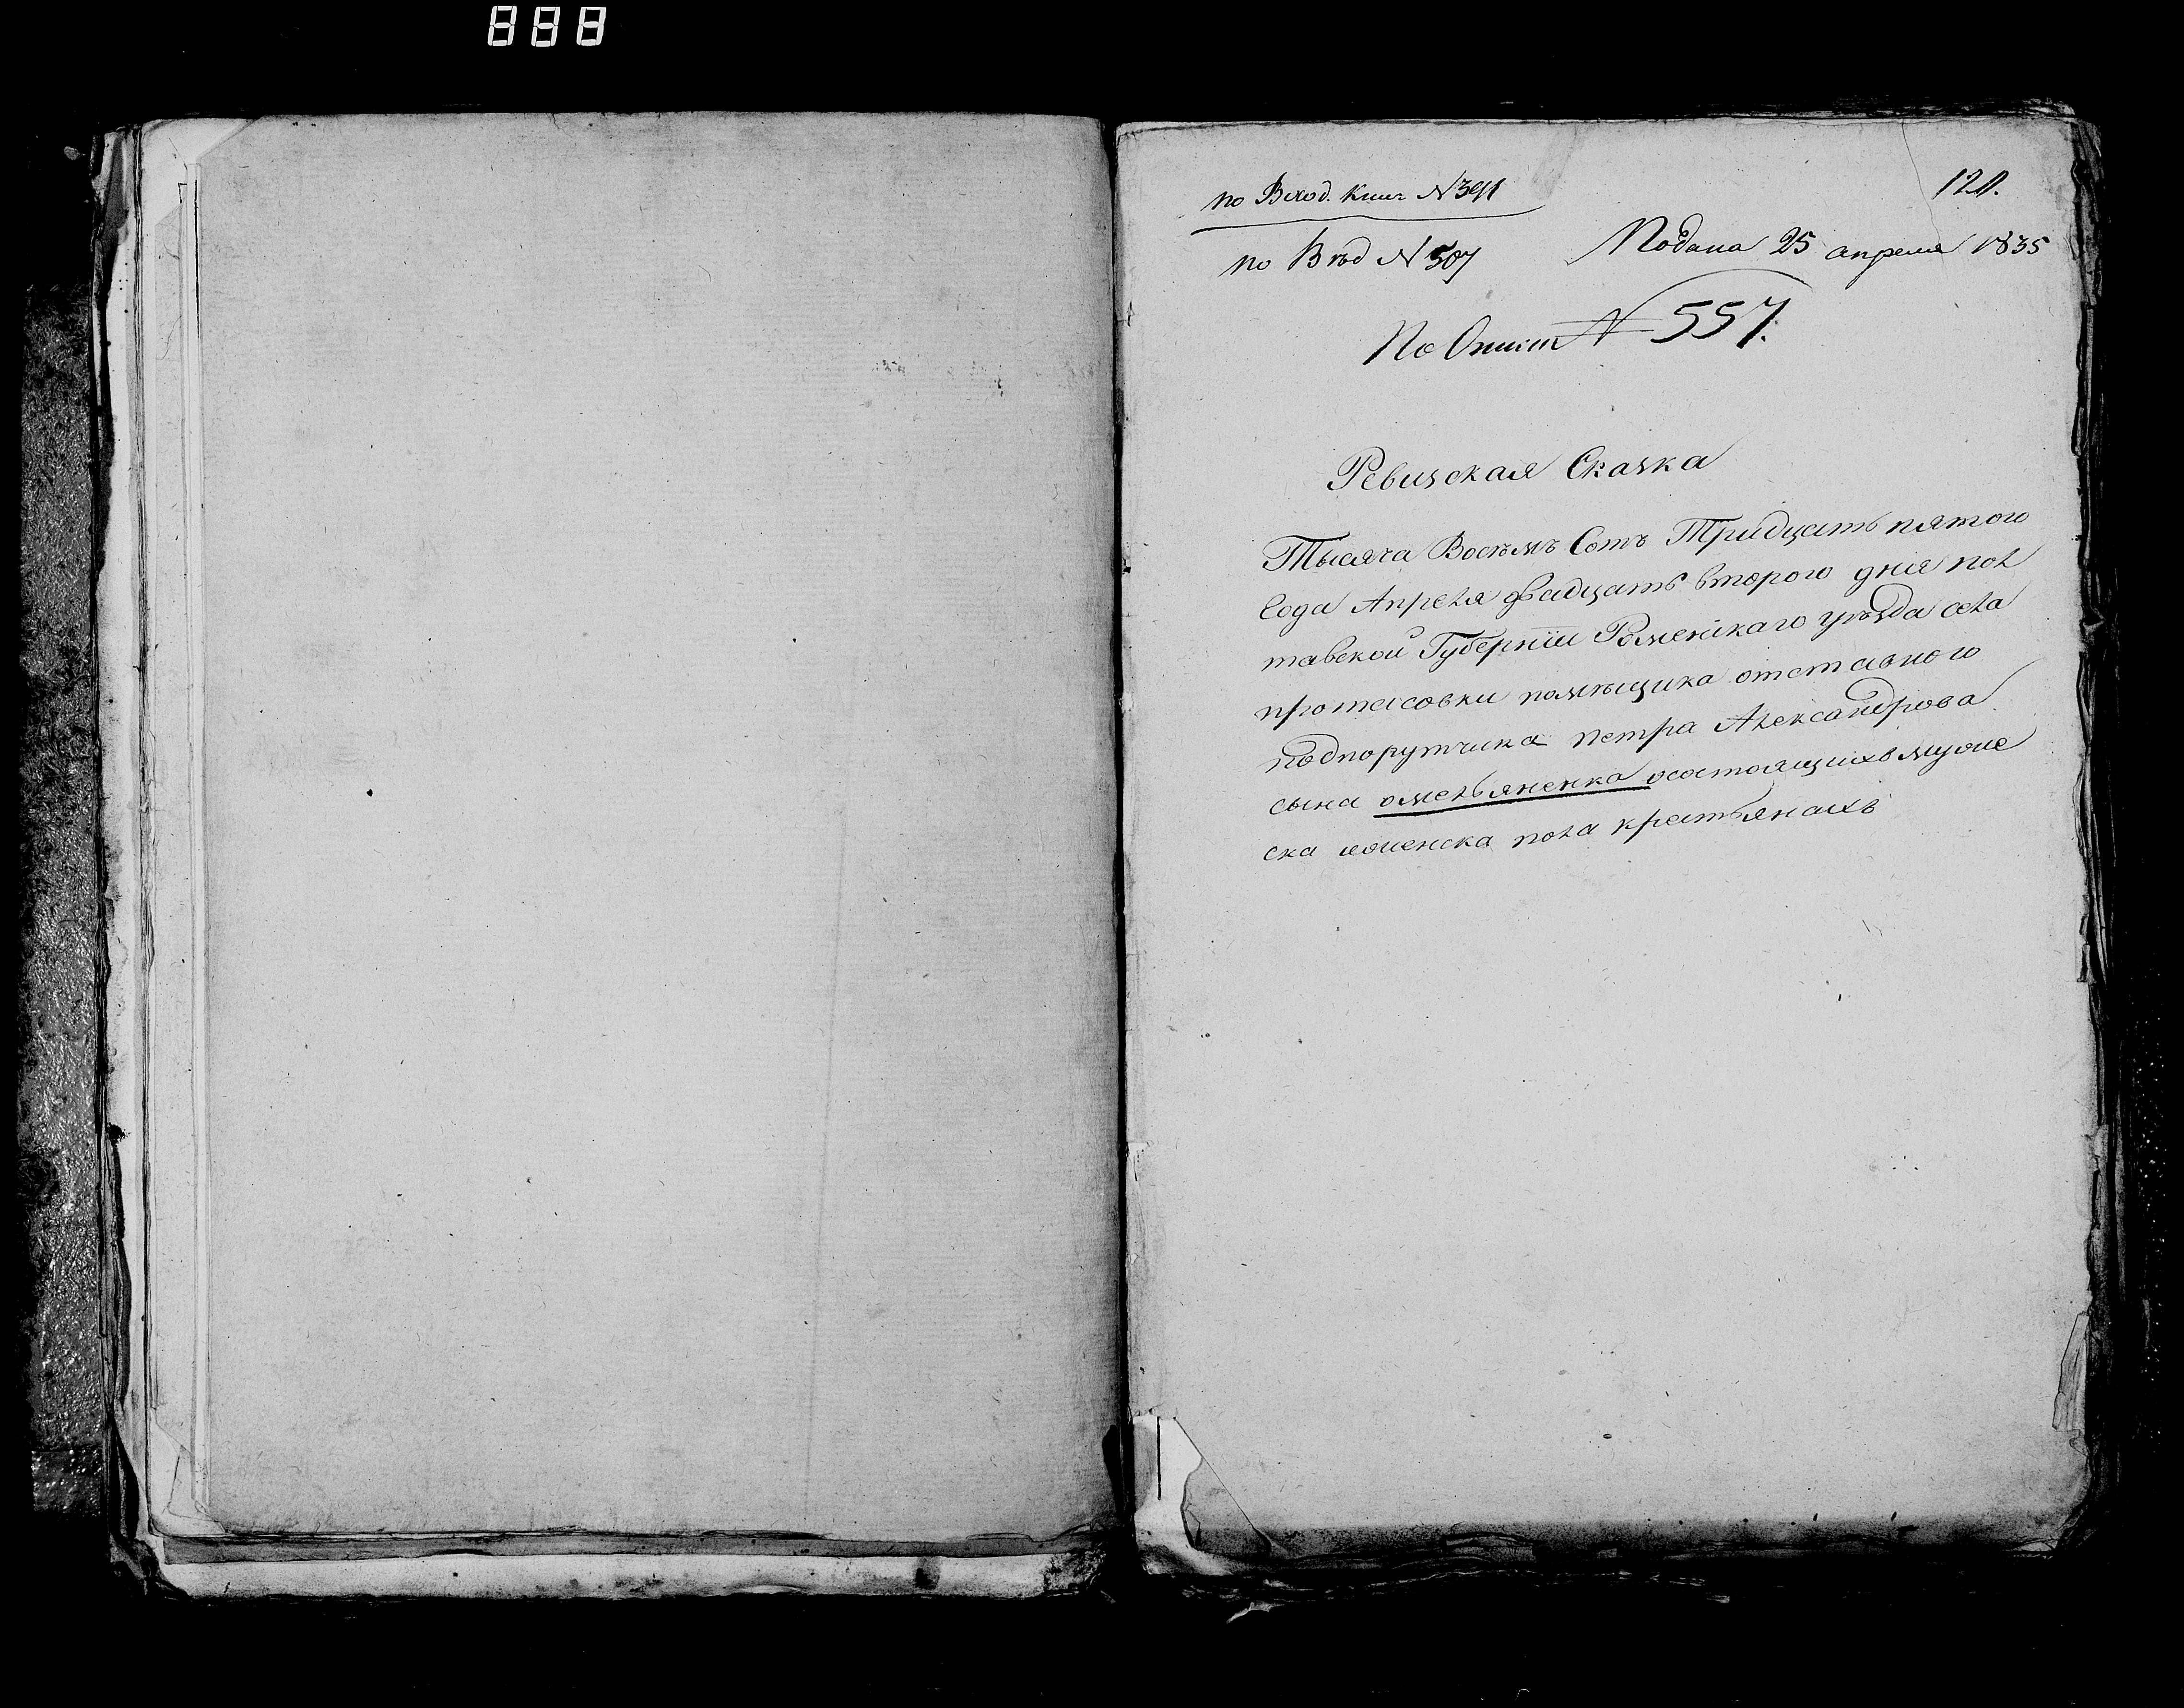 888
120.
по Вход. Книг №391
по Вѣд №507
Подана 25 апреля 1835
По Описи № 557.
Ревизская Сказка
Тысяча Восѣмъ Сотъ Тридцать пятого
Года Апреля двадцать второго дня пол
тавской Губернiи Роменскаго уѣзда села
протасовки помѣщика отставного
подпорутчика петра Александрова
сына омельяненка осостоящихъ муже
ска иженска пола крестьянахъ